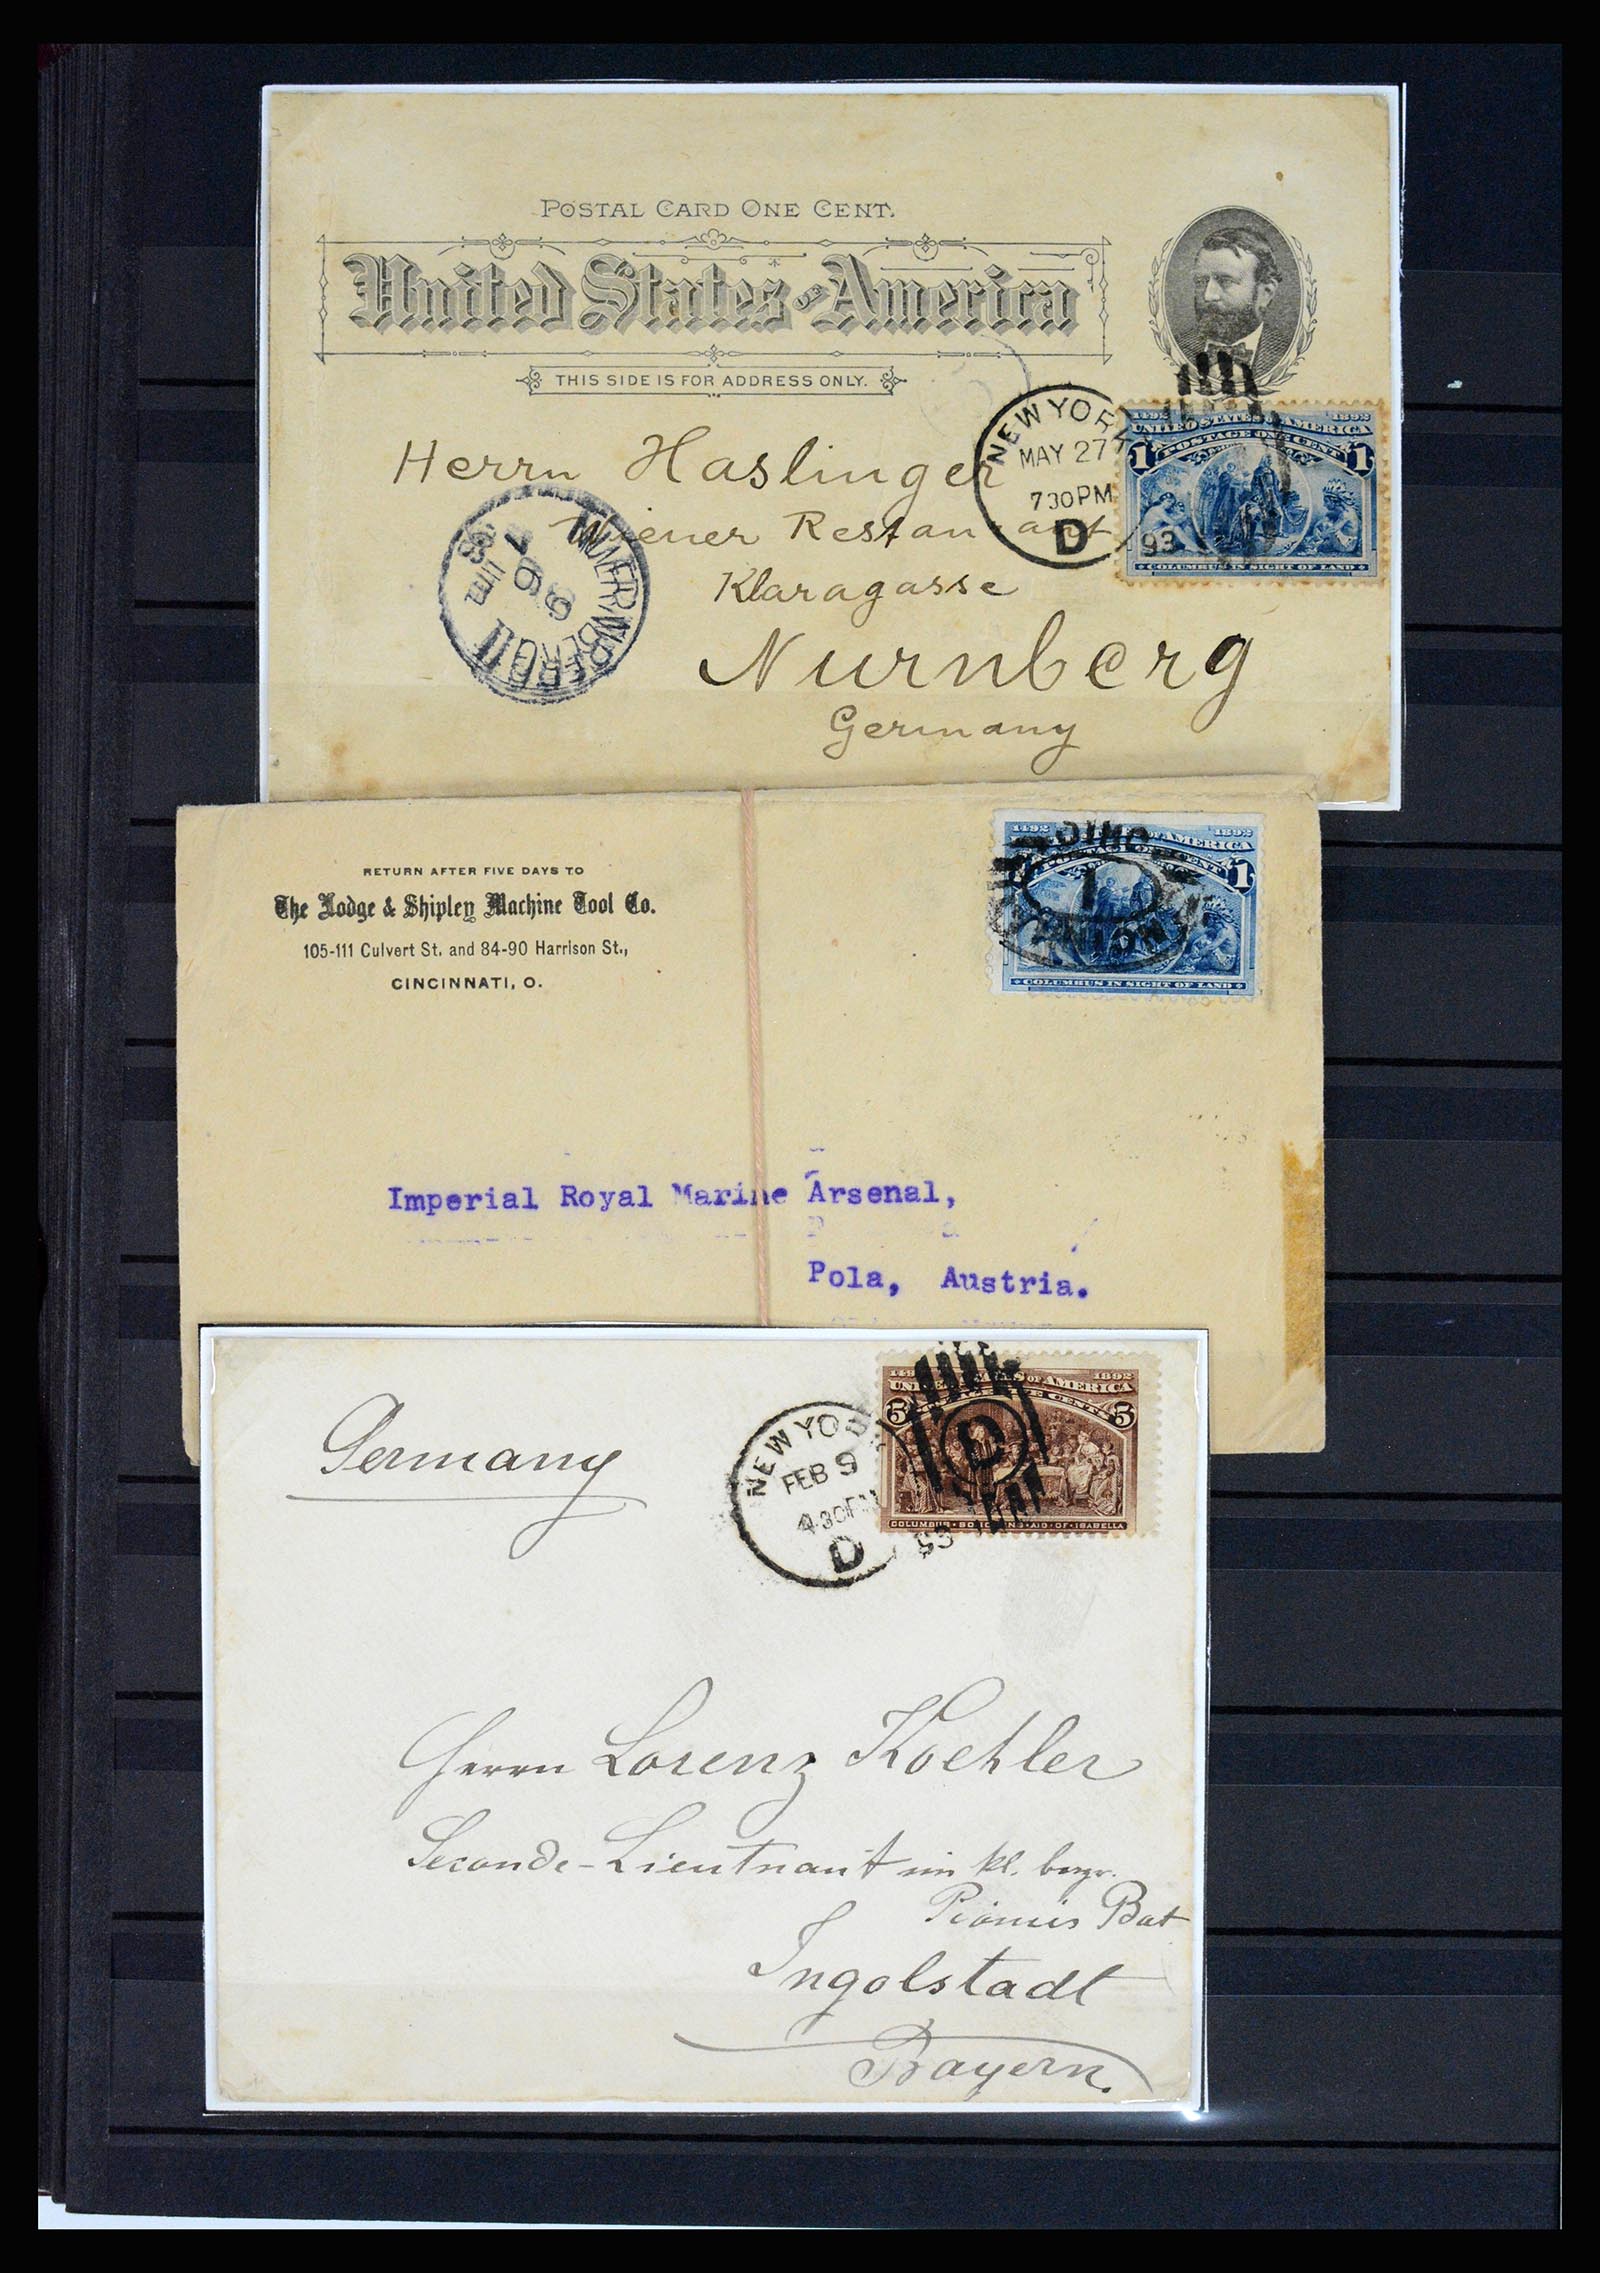 POSTAL CARD ONE CENT.
United States of America
THIS SIDE IS FOR ADDRESS ONLY.
NEW YORK
MAY 27
730PM
D
93
1492 1892
UNITED STATES OF AMERICA
POSTAGE ONE CENT
1 1
COLUMBUS IN SIGHT OF LAND
Herrn Haslinger
Wiener Restaurant
Klaragasse
Nurnberg
Germany
RETURN AFTER FIVE DAYS TO
The Lodge & Shipley Machine Tool Co.
105-111 Culvert St. and 84-90 Harrison St.,
CINCINNATI, O.
1492 1892
OF AMERICA
POSTAGE ONE CENT
1
COLUMBUS IN SIGHT OF LAND
Imperial Royal Marine Arsenal,
Pola, Austria.
Germany
NEW YORK
FEB 9
430PM
D
D
1892
OF AMERICA
5 5
COLUMBUS SOLICITING AID OF ISABELLA
Herrn Lorenz Koehler
Seconde-Lieutnant im kl. bayr.
Bat
Ingolstadt
Bayern.